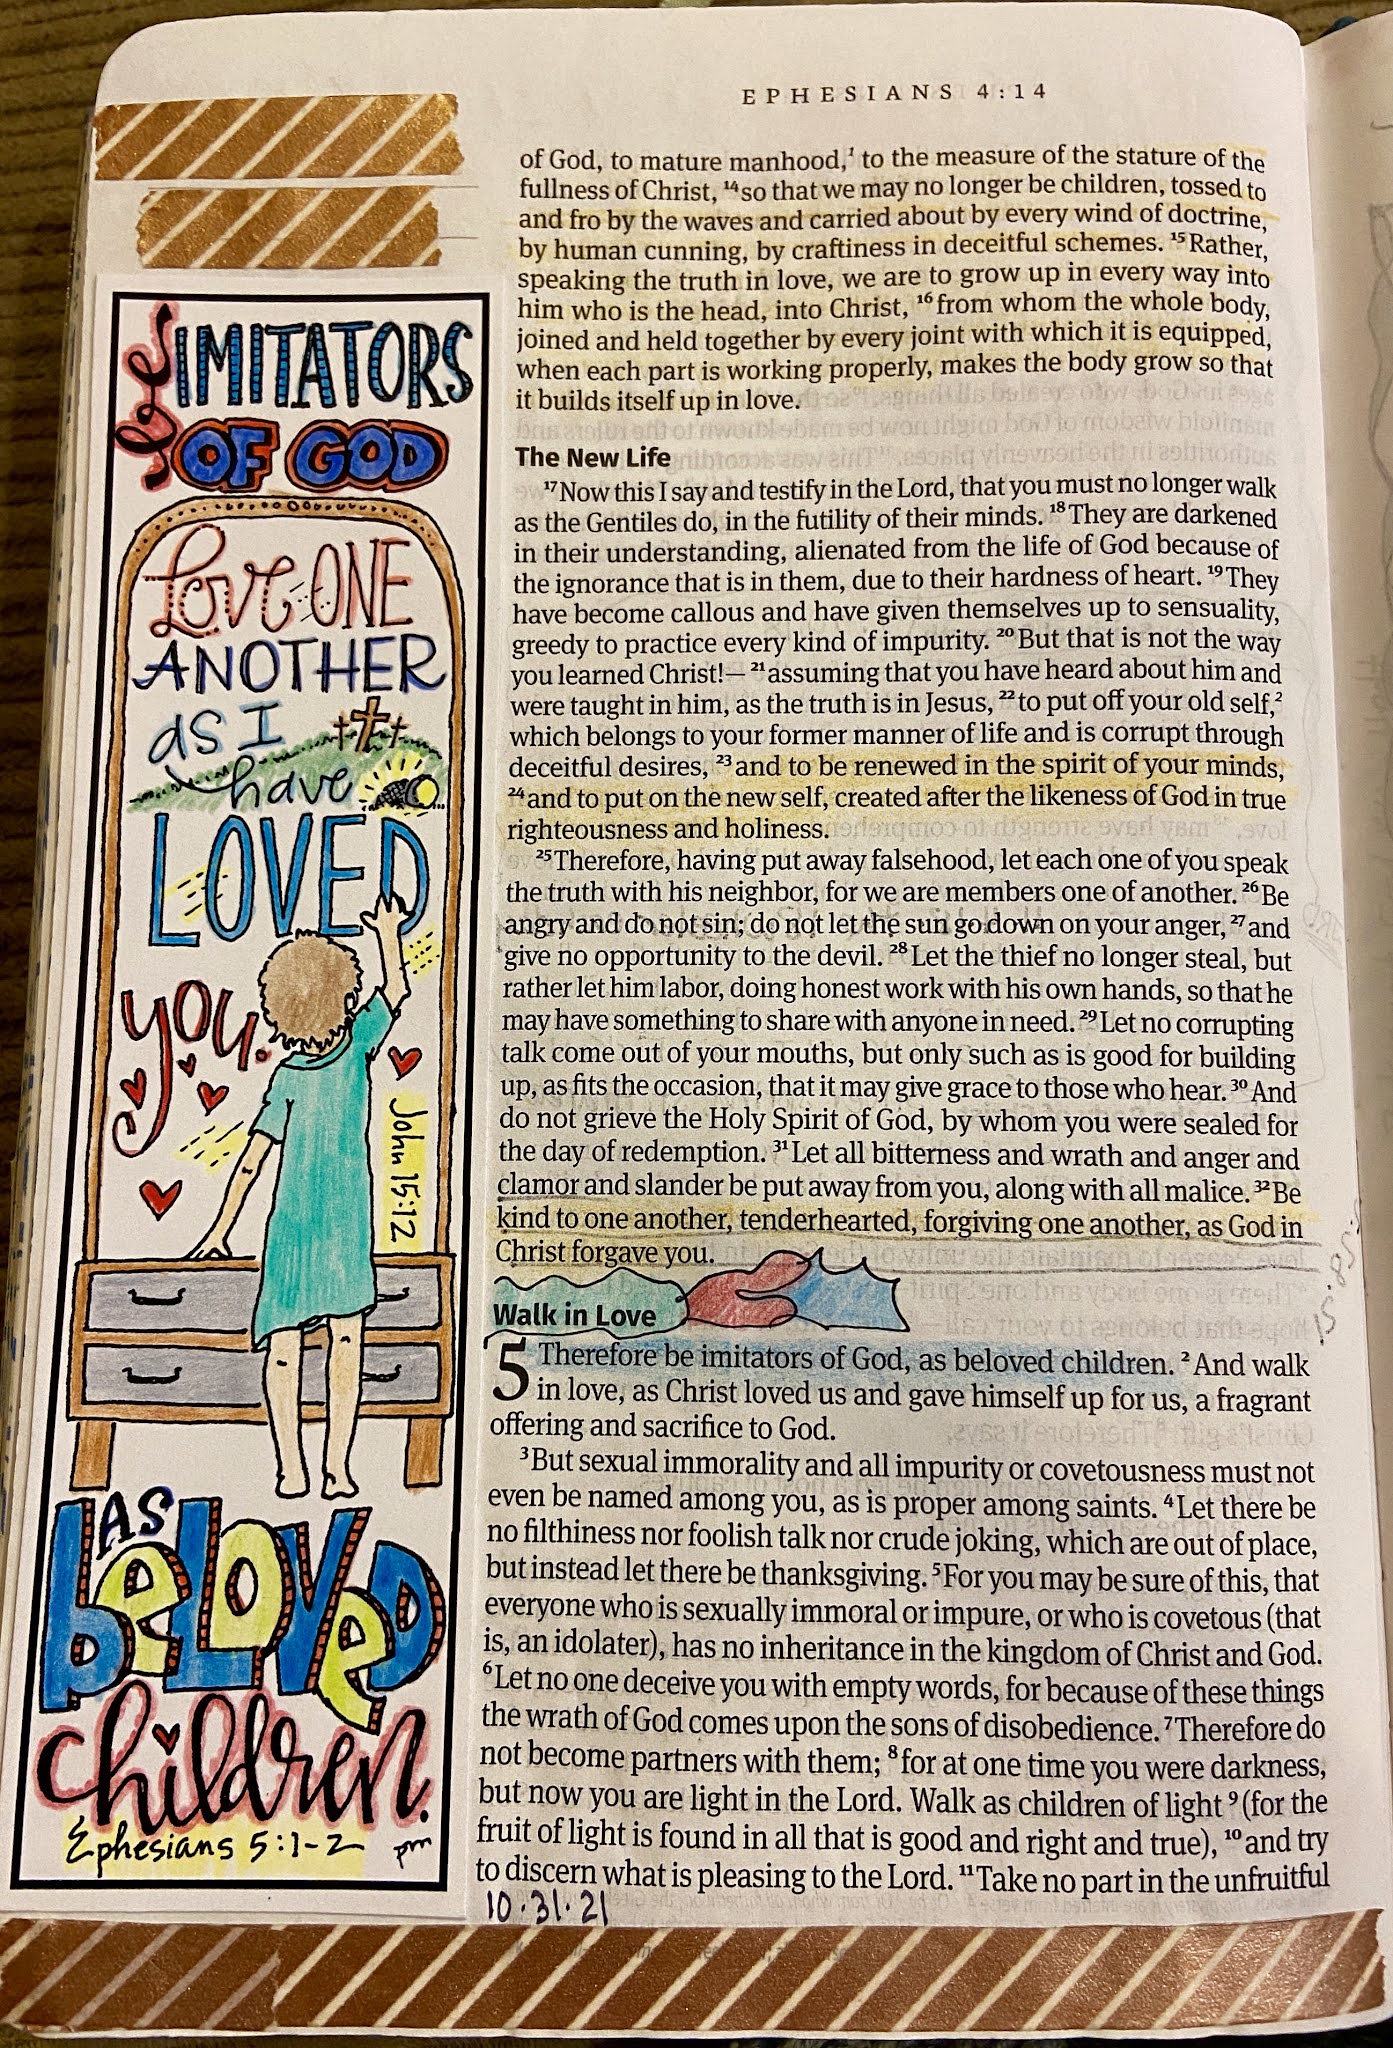 EPHESIANS 4:14
be IMITATORS
OF GOD
Love ONE
ANOTHER
as I
have
LOVED
you.
John 15:12
AS
BELOVED
children.
Ephesians 5:1-2 pm
of God, to mature manhood,¹ to the measure of the stature of the
fullness of Christ, ¹⁴so that we may no longer be children, tossed to
and fro by the waves and carried about by every wind of doctrine,
by human cunning, by craftiness in deceitful schemes. ¹⁵Rather,
speaking the truth in love, we are to grow up in every way into
him who is the head, into Christ, ¹⁶from whom the whole body,
joined and held together by every joint with which it is equipped,
when each part is working properly, makes the body grow so that
it builds itself up in love.
The New Life
¹⁷Now this I say and testify in the Lord, that you must no longer walk
as the Gentiles do, in the futility of their minds. ¹⁸They are darkened
in their understanding, alienated from the life of God because of
the ignorance that is in them, due to their hardness of heart. ¹⁹They
have become callous and have given themselves up to sensuality,
greedy to practice every kind of impurity. ²⁰But that is not the way
you learned Christ!— ²¹assuming that you have heard about him and
were taught in him, as the truth is in Jesus, ²²to put off your old self,²
which belongs to your former manner of life and is corrupt through
deceitful desires, ²³and to be renewed in the spirit of your minds,
²⁴and to put on the new self, created after the likeness of God in true
righteousness and holiness.
²⁵Therefore, having put away falsehood, let each one of you speak
the truth with his neighbor, for we are members one of another. ²⁶Be
angry and do not sin; do not let the sun go down on your anger, ²⁷and
give no opportunity to the devil. ²⁸Let the thief no longer steal, but
rather let him labor, doing honest work with his own hands, so that he
may have something to share with anyone in need. ²⁹Let no corrupting
talk come out of your mouths, but only such as is good for building
up, as fits the occasion, that it may give grace to those who hear. ³⁰And
do not grieve the Holy Spirit of God, by whom you were sealed for
the day of redemption. ³¹Let all bitterness and wrath and anger and
clamor and slander be put away from you, along with all malice. ³²Be
kind to one another, tenderhearted, forgiving one another, as God in
Christ forgave you.
Walk in Love
5 Therefore be imitators of God, as beloved children. ²And walk
in love, as Christ loved us and gave himself up for us, a fragrant
offering and sacrifice to God.
³But sexual immorality and all impurity or covetousness must not
even be named among you, as is proper among saints. ⁴Let there be
no filthiness nor foolish talk nor crude joking, which are out of place,
but instead let there be thanksgiving. ⁵For you may be sure of this, that
everyone who is sexually immoral or impure, or who is covetous (that
is, an idolater), has no inheritance in the kingdom of Christ and God.
⁶Let no one deceive you with empty words, for because of these things
the wrath of God comes upon the sons of disobedience. ⁷Therefore do
not become partners with them; ⁸for at one time you were darkness,
but now you are light in the Lord. Walk as children of light ⁹(for the
fruit of light is found in all that is good and right and true), ¹⁰and try
to discern what is pleasing to the Lord. ¹¹Take no part in the unfruitful
10.31.21